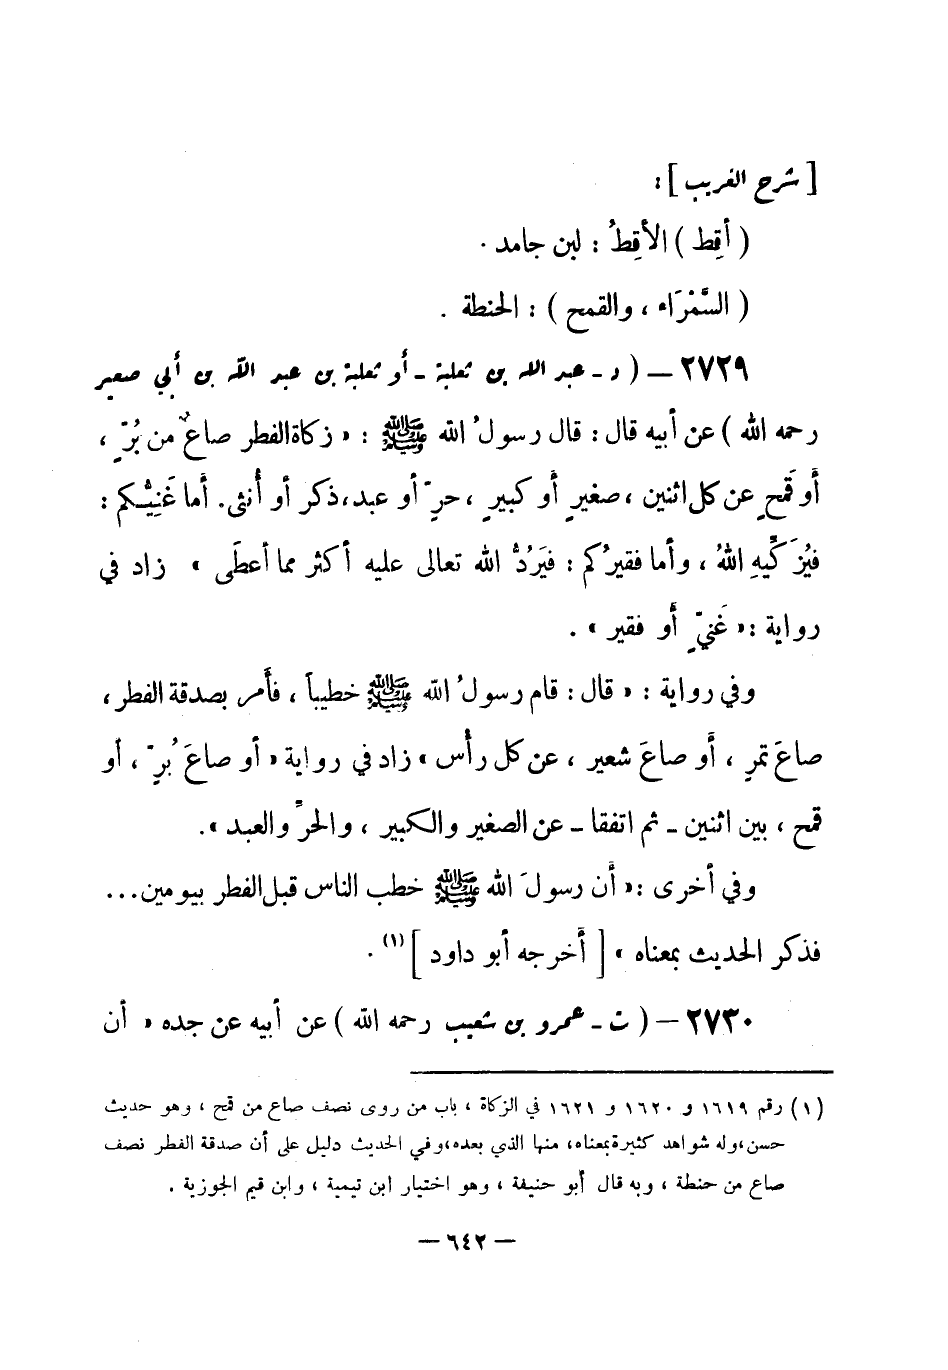 [ شرح الغريب ] :
( أَقِط ) الأقِطُ : لبن جامد .
( السَّمْرَاء ، والقمح ) : الحنطة .
٢٧٢٩ – ( د - عبد الله بن ثعلبة - أو ثعلبة بن عبد الله بن أبي صعير
رحمه الله ) عن أبيه قال : قال رسولُ الله ﷺ : « زكاة الفطر صاعٌ من بُرٍّ ،
أَو قَمحٍ عن كل اثنين ، صغيرٍ أَو كبيرٍ ، حرٍّ أو عبد ، ذكر أو أُنثى. أَما غَنِيُّكم :
فيُزَكِّيهِ اللهُ ، وأما فقيرُكم : فيَرُدُّ الله تعالى عليه أكثر مما أعطَى » زاد في
رواية : « غَنيٍّ أَو فقير » .
وفي رواية : « قال : قام رسولُ الله ﷺ خطيباً ، فأَمر بصدقة الفطر ،
صاعَ تمرٍ ، أَو صاعَ شعير ، عن كل رأْس » زاد في رواية « أو صاعَ بُرٍّ ، أو
قمح ، بين اثنين - ثم اتفقا - عن الصغير والكبير ، والحرِّ والعبد ».
وفي أخرى : « أن رسولَ الله ﷺ خطب الناس قبل الفطر بيومين...
فذكر الحديث بمعناه » [ أَخرجه أبو داود ] (١) .
٢٧٣٠ – ( ت - عمرو بن شعيب رحمه الله ) عن أبيه عن جده « أن
(١) رقم ١٦١٩ و ١٦٢٠ و ١٦٢١ في الزكاة ، باب من روى نصف صاع من قمح ، وهو حديث
حسن ، وله شواهد كثيرة بمعناه ، منها الذي بعده ، وفي الحديث دليل على أن صدقة الفطر نصف
صاع من حنطة ، وبه قال أبو حنيفة ، وهو اختيار ابن تيمية ، وابن قيم الجوزية .
– ٦٤٢ –